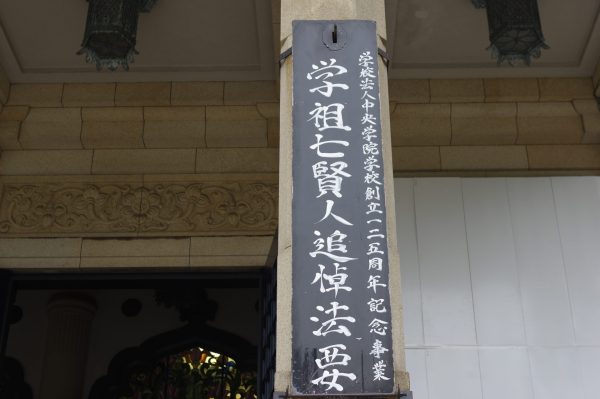 学校法人中央学院学校創立一二五周年記念事業
学祖七賢人追悼法要